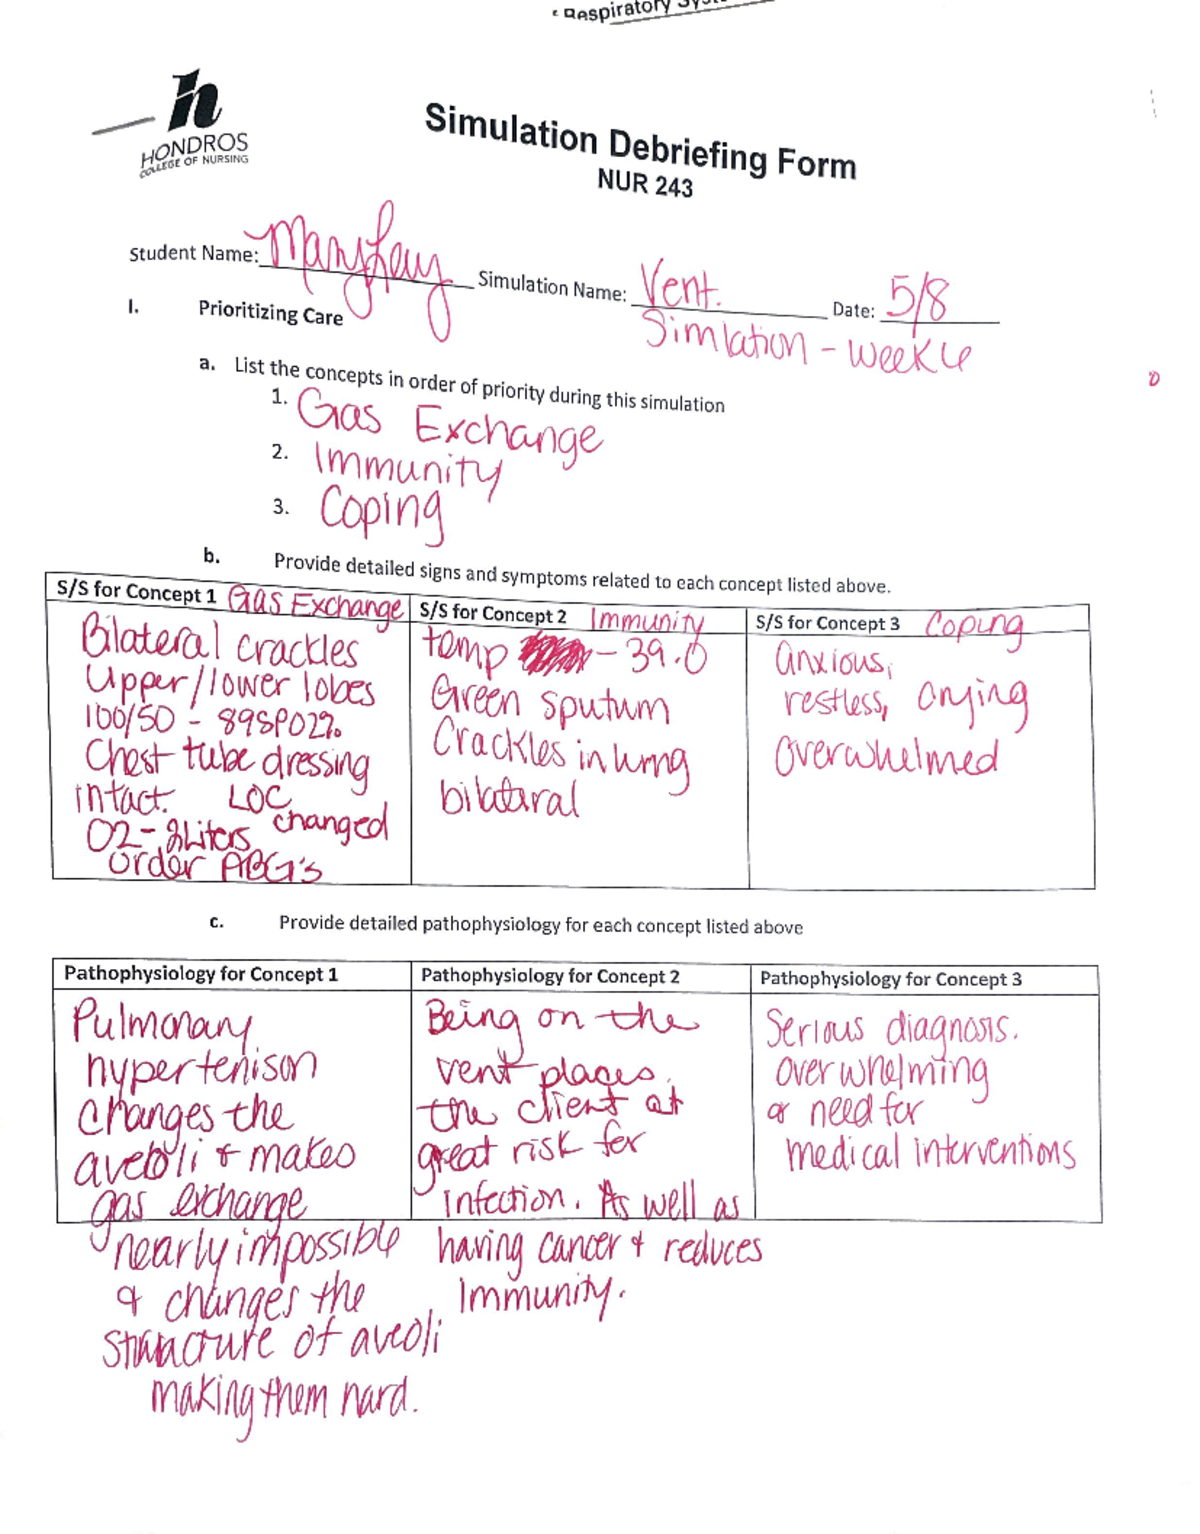 Respiratory
h
HONDROS
COLLEGE OF NURSING
Simulation Debriefing Form
NUR 243
Student Name: Simulation Name: Vent. Date: 5/8
Simlation - week 6
I. Prioritizing Care
a. List the concepts in order of priority during this simulation
1. Gas Exchange
2. Immunity
3. Coping
b. Provide detailed signs and symptoms related to each concept listed above.
S/S for Concept 1 Gas Exchange
Bilateral crackles
Upper/lower lobes
100/50 - 89SPO2%
Chest tube dressing
intact. LOC
changed
O2 - 2Liters
order ABG's
S/S for Concept 2 Immunity
temp - 39.0
Green sputum
Crackles in lung
bilataral
S/S for Concept 3 Coping
anxious,
restless, crying
Overwhelmed
c. Provide detailed pathophysiology for each concept listed above
Pathophysiology for Concept 1
Pulmonary
hypertenison
changes the
aveoli & makes
gas exchange
nearly impossible
& changes the
structure of aveoli
making them hard.
Pathophysiology for Concept 2
Being on the
vent places
the client at
great risk for
infection. As well as
having cancer & reduces
Immunity.
Pathophysiology for Concept 3
Serious diagnosis.
overwhelming
or need for
medical interventions